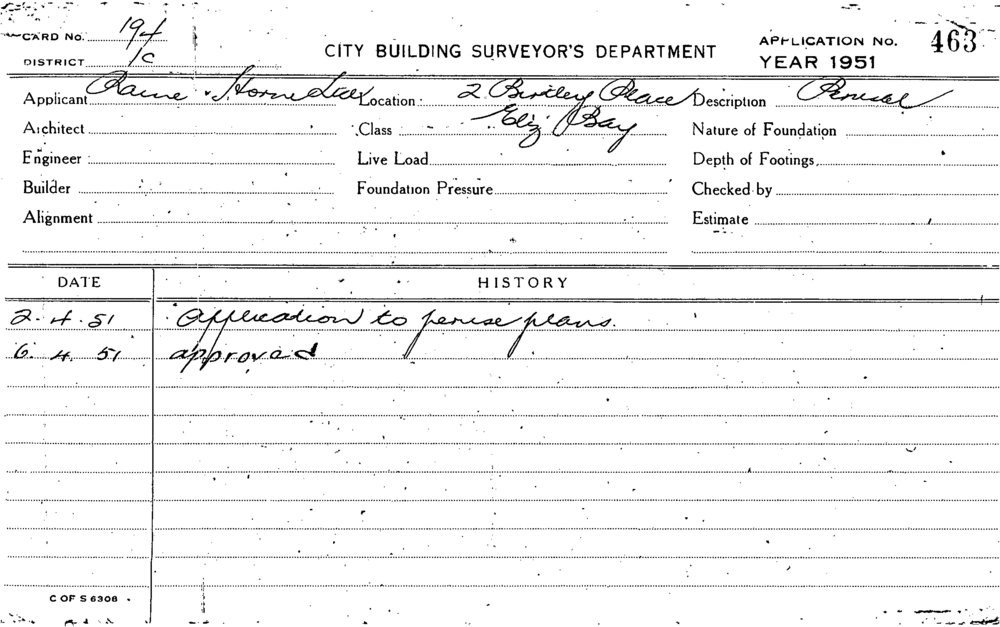 CARD No. 194
DISTRICT 1C
CITY BUILDING SURVEYOR'S DEPARTMENT
APPLICATION No. 463
YEAR 1951
Applicant Raine & Horne Location: 2 Birtley Place Description Perusal
Architect Class Eliz Bay Nature of Foundation
Engineer Live Load Depth of Footings
Builder Foundation Pressure Checked by
Alignment Estimate
DATE HISTORY
2.4.51 Application to peruse plans.
6.4.51 approved
C OF S 6308